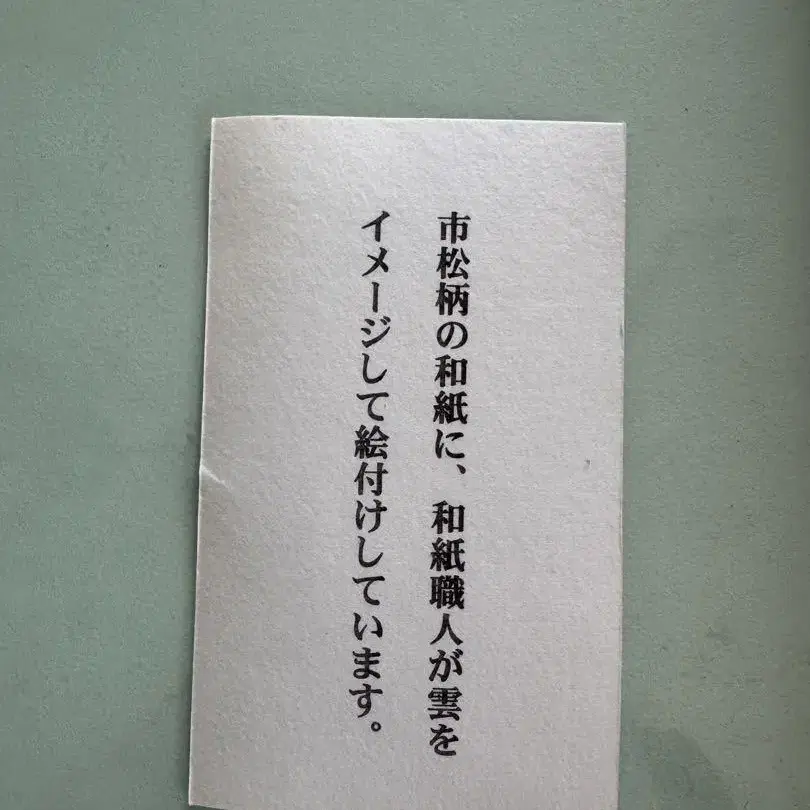 市松柄の和紙に、和紙職人が雲を
イメージして絵付けしています。